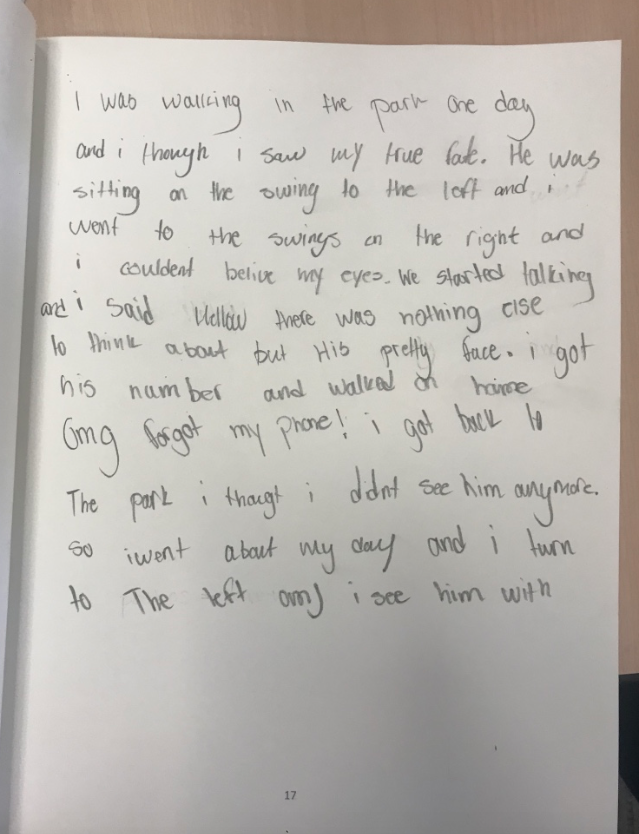 I was walking in the park one day
and i though i saw my true fate. He was
sitting on the swing to the left and i
went to the swings on the right and
i couldent belive my eyes. We started talking
and i said Hellow there was nothing else
to think about but His pretty face. i got
his number and walked on home
Omg forgot my phone! i got back to
The park i thougt i didnt see him anymore.
so iwent about my day and i turn
to The left omg i see him with
17